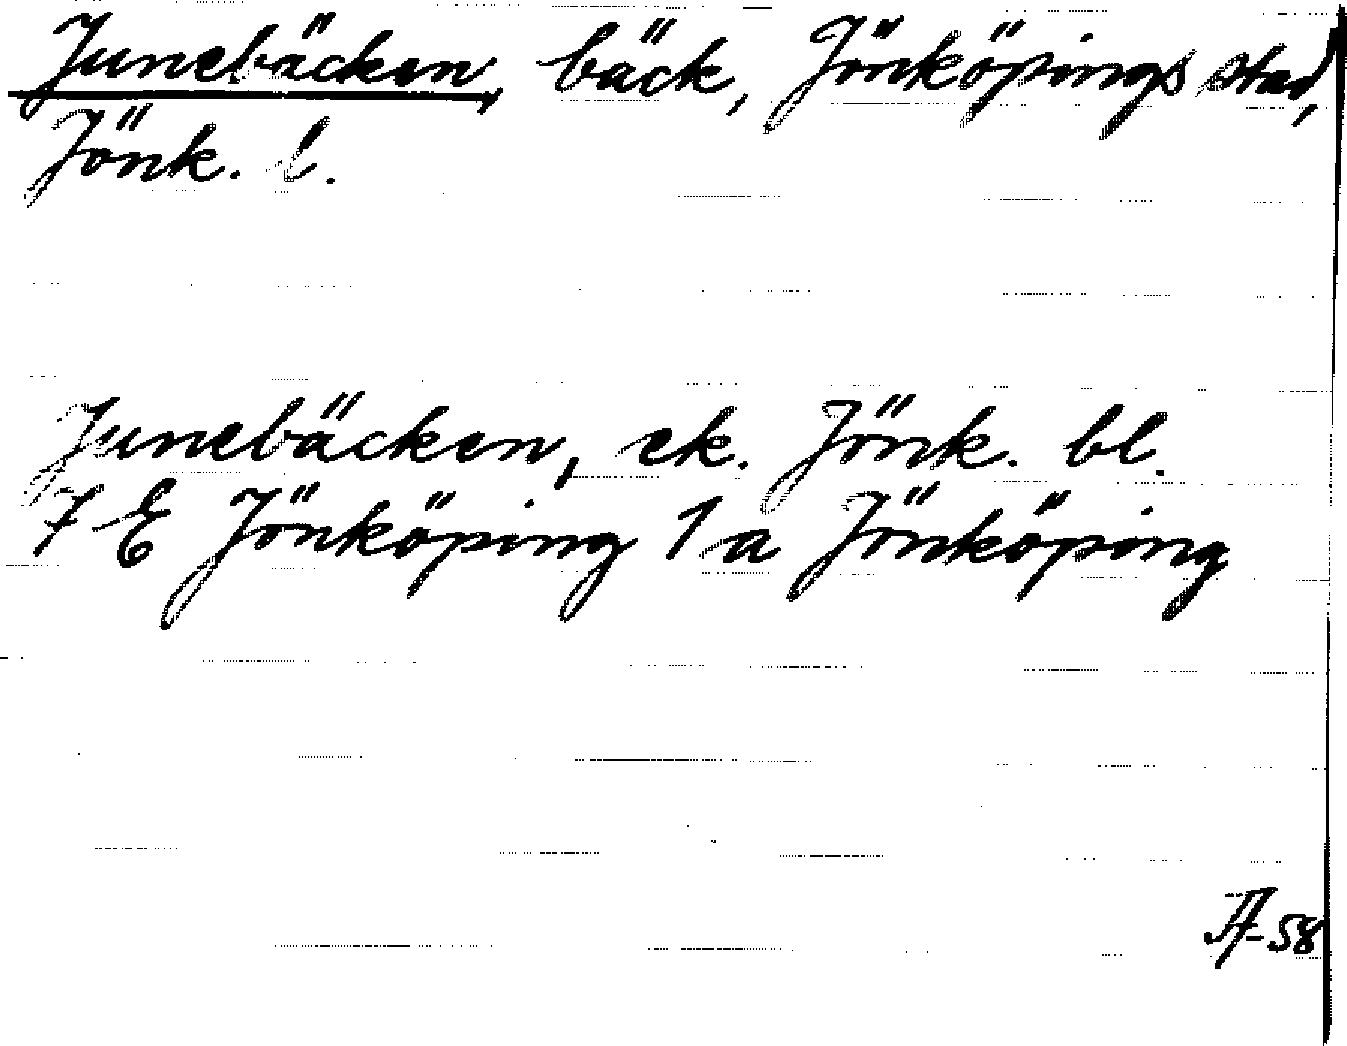 Junebäcken, bäck, Jönköpings stad,
Jönk. l.
Junebäcken, ek. Jönk. bl.
7 E Jönköping 1 a Jönköping
A-58